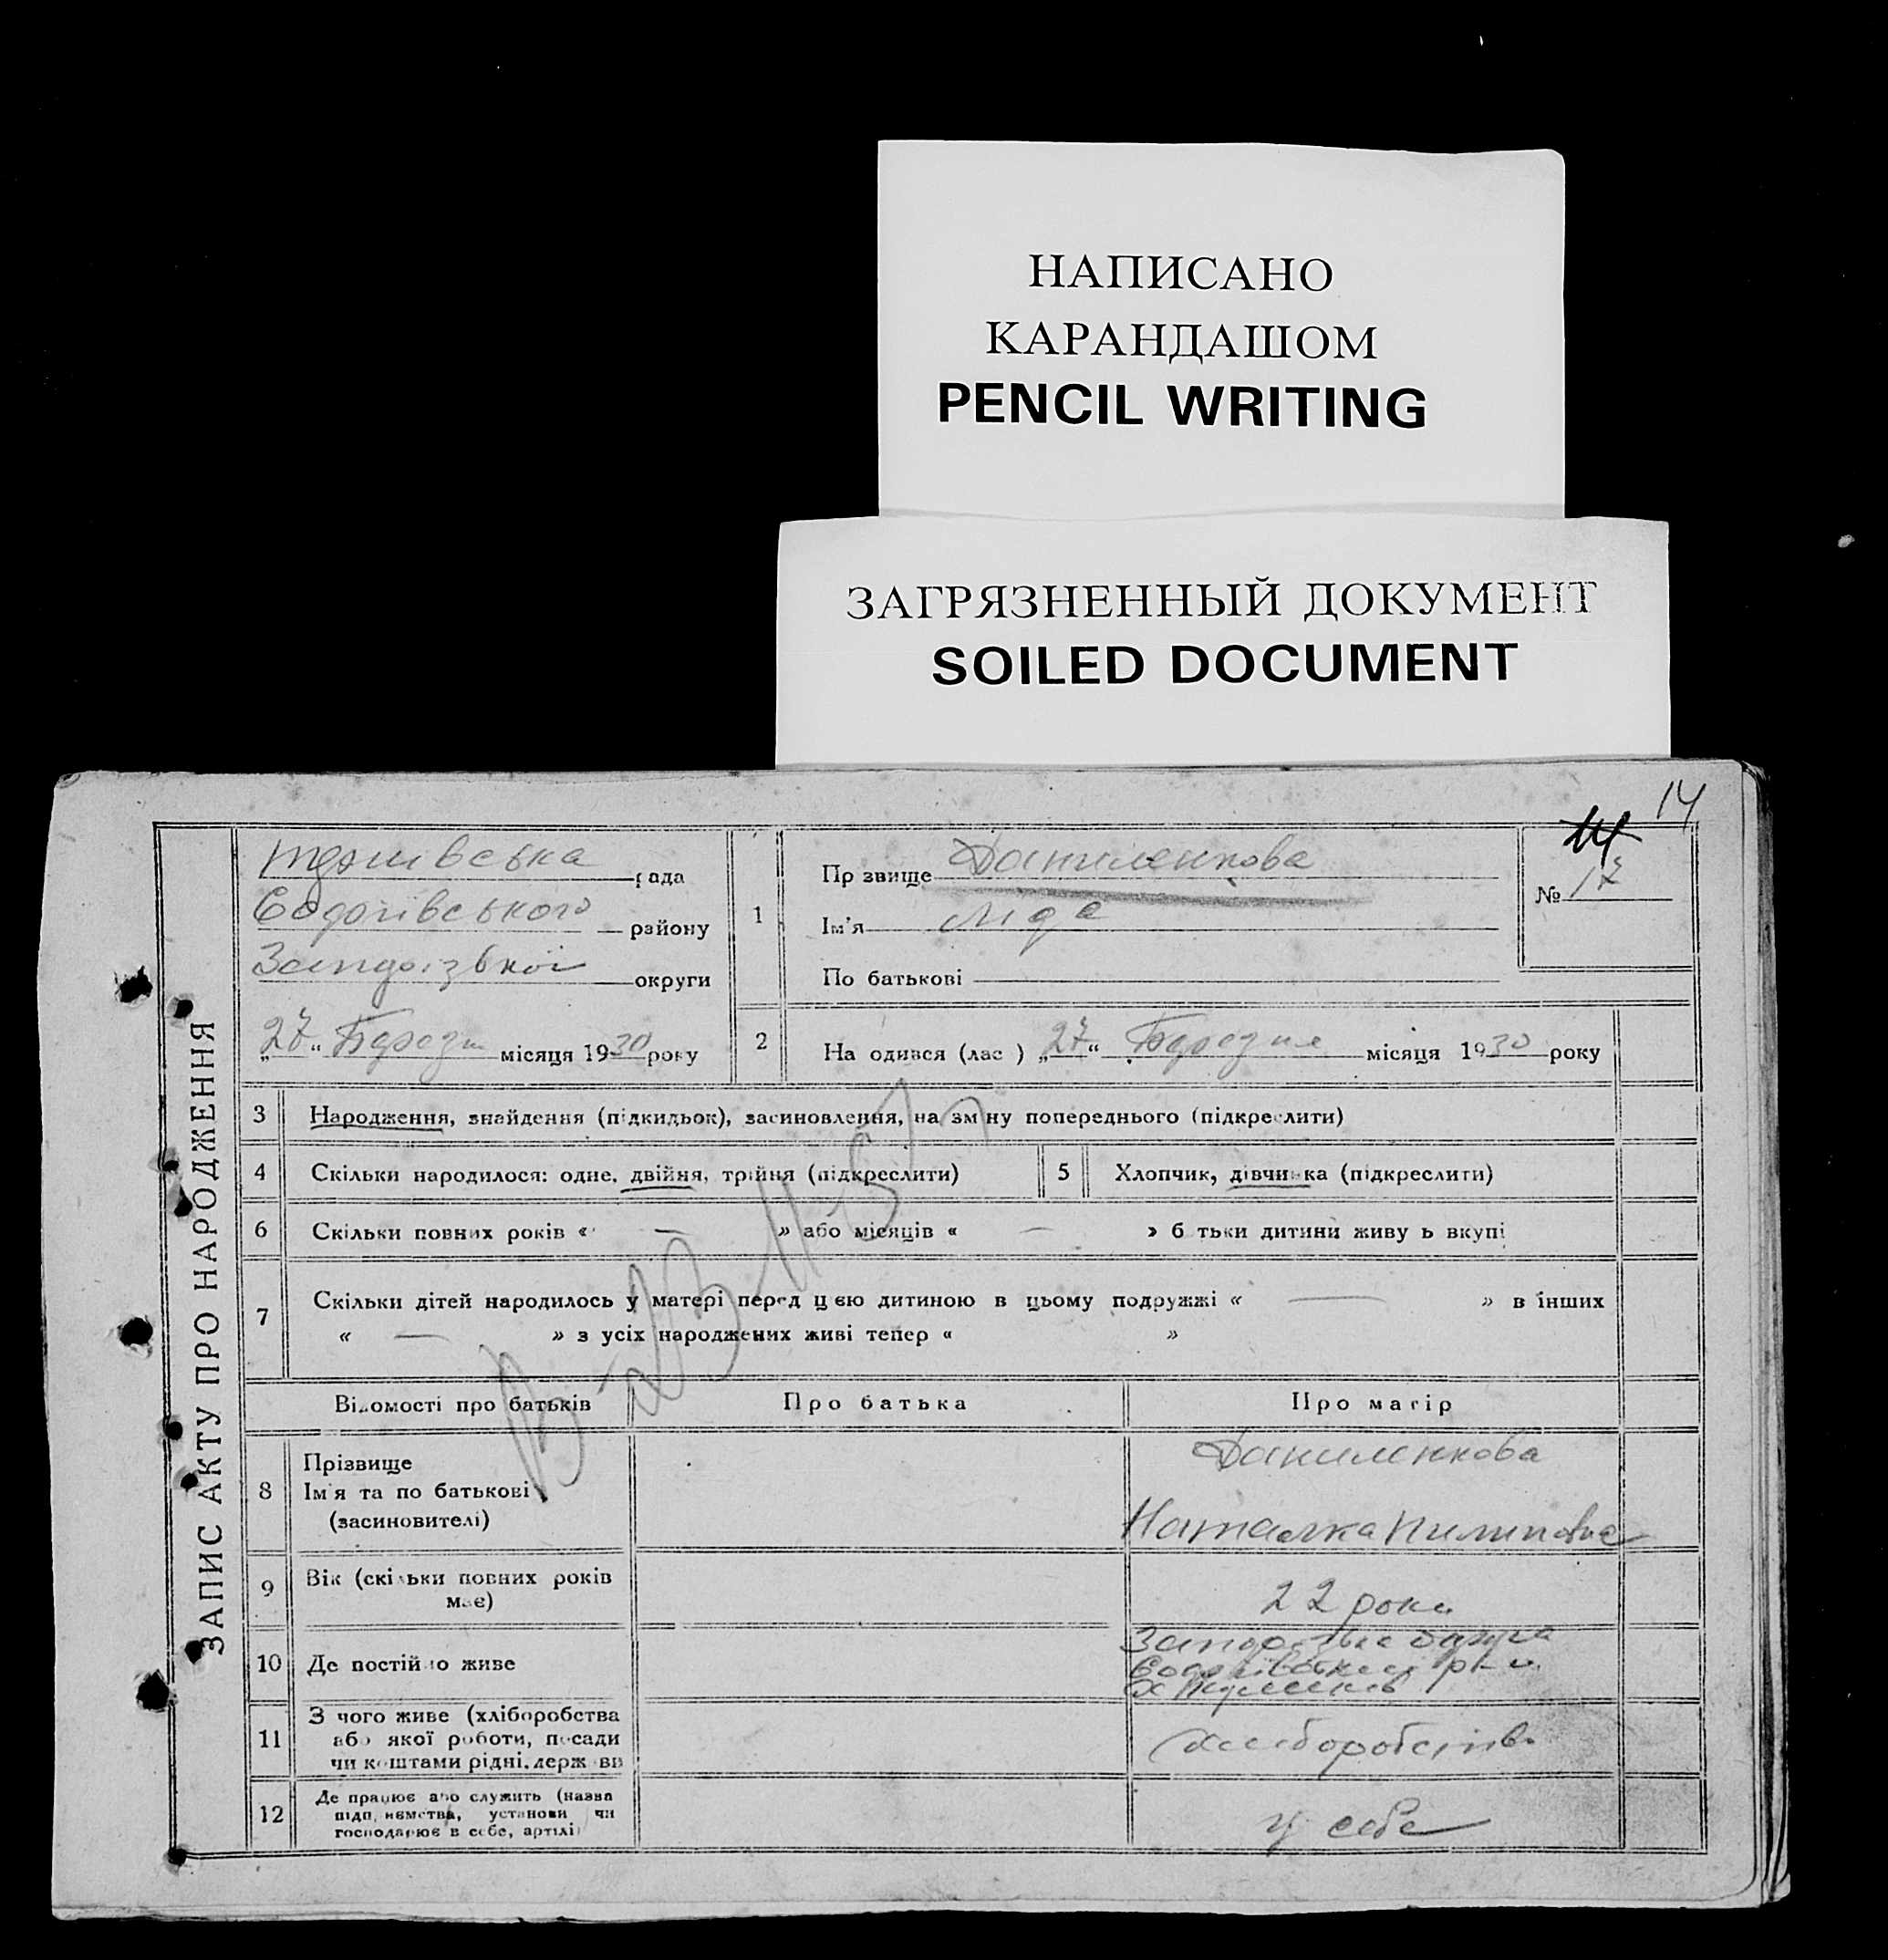 НАПИСАНО
КАРАНДАШОМ
PENCIL WRITING
ЗАГРЯЗНЕННЫЙ ДОКУМЕНТ
SOILED DOCUMENT
14
14
№ 17
ЗАПИС АКТУ ПРО НАРОДЖЕННЯ
рада
району
округи
„27“ місяця 1930 року
1
Прізвище Даниленкова
Ім'я Ліда
По батькові
2
На одився (лас ) „27“ місяця 1930 року
3 Народження, знайдення (підкидьок), засиновлення, на зміну попереднього (підкреслити)
4 Скільки народилося: одне, двійня, трійня (підкреслити)
5 Хлопчик, дівчинка (підкреслити)
6 Скільки повних років « — » або місяців « — » б тьки дитини живу ь вкупі
7 Скільки дітей народилось у матері перед цією дитиною в цьому подружжі « — » в інших
« — » з усіх народжених живі тепер « »
Відомості про батьків
Про батька
Про матір
8 Прізвище
Ім'я та по батькові
(засиновителі)
Даниленкова
Наталка Пилиповна
9 Вік (скільки повних років
має)
22 роки
10 Де постійно живе
11 З чого живе (хліборобства
або якої роботи, посади
чи коштами рідні, держави
12 Де працює або служить (назва
підприємства, установи чи
господарює в себе, артілі)
у себе